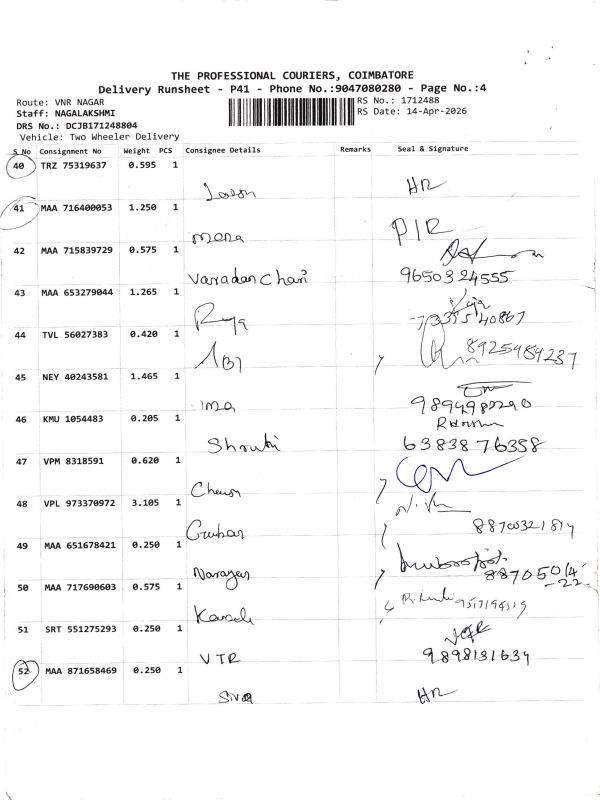 THE PROFESSIONAL COURIERS, COIMBATORE
Delivery Runsheet - P41 - Phone No.:9047080280 - Page No.:4
Route: VNR NAGAR
RS No.: 1712488
Staff: NAGALAKSHMI
RS Date: 14-Apr-2026
DRS No.: DCJB171248804
Vehicle: Two Wheeler Delivery
S No Consignment No Weight PCS Consignee Details Remarks Seal & Signature
40 TRZ 75319637 0.595 1
HR
41 MAA 716400053 1.250 1
mena P/R
42 MAA 715839729 0.575 1
Varadan Chari 9650324555
43 MAA 653279044 1.265 1
44 TVL 56027383 0.420 1
8925989237
45 NEY 40243581 1.465 1
ima 9894982290
46 KMU 1054483 0.205 1
Shruthi 6383876358
47 VPM 8318591 0.620 1
48 VPL 973370972 3.105 1
88700321814
49 MAA 651678421 0.250 1
Narayan 88705014
-22
50 MAA 717690603 0.575 1
51 SRT 551275293 0.250 1
VTR 9898131634
52 MAA 871658469 0.250 1
Siva HR